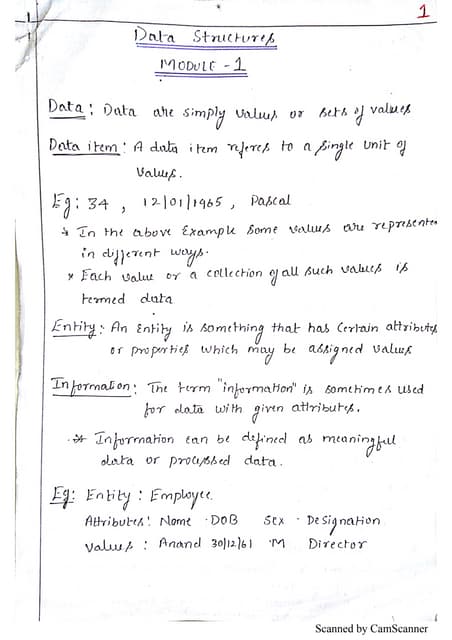 1
Data Structures
MODULE - 1
Data : Data are simply values or sets of values
Data item : A data item referes to a single unit of
values.
Eg : 34 , 12/01/1965 , Pascal
* In the above Example some values are represente
in different ways.
* Each value or a collection of all such values is
termed data
Entity : An Entity is something that has certain attributes
or properties which may be assigned values
Information : The term "information" is sometimes used
for data with given attributes.
* Information can be defined as meaningful
data or processed data.
Eg : Entity : Employee
Attributes : Name DOB Sex Designation
values : Anand 30/12/61 M Director
Scanned by CamScanner